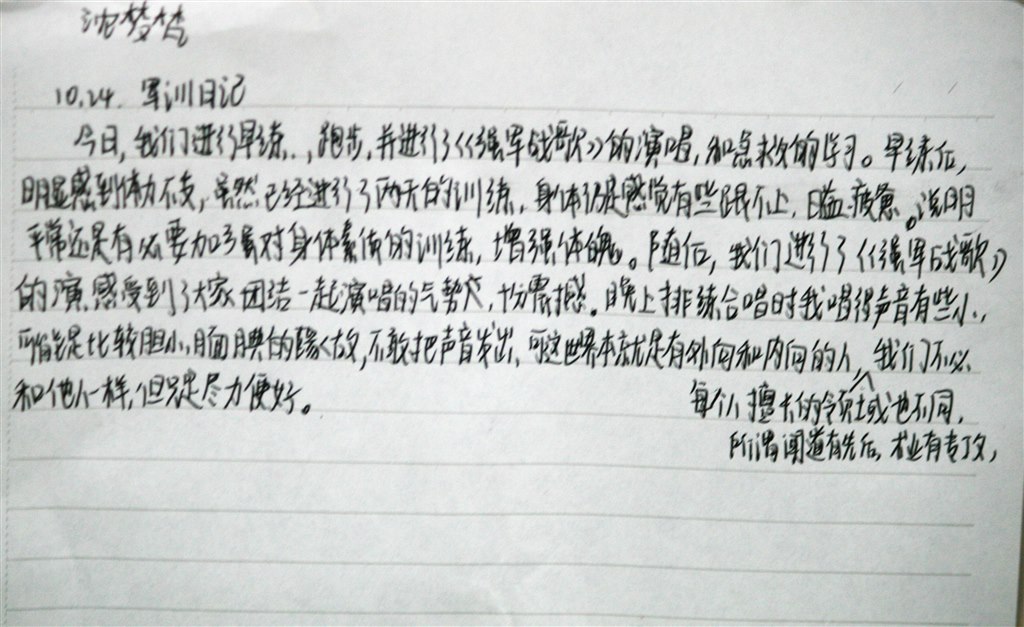 沈梦梦
10.24. 军训日记
今日，我们进行早练.，跑步，并进行了《强军战歌》的演唱，和急救的学习。早练后，
明显感到体力不支，虽然已经进行了两天的训练，身体仍是感觉有些跟不上，日益疲惫。说明
平常还是有必要加强对身体素质的训练，增强体魄。随后，我们进行了《强军战歌》
的演，感受到了大家团结一起演唱的气势，十分震撼。晚上排练合唱时我唱得声音有些小，
可能是比较胆小，腼腆的缘故，不敢把声音发出，可这世界本就是有外向和内向的人，我们不必
和他人一样，但只是尽力便好。
每个人擅长的领域也不同，
所谓闻道有先后，术业有专攻，